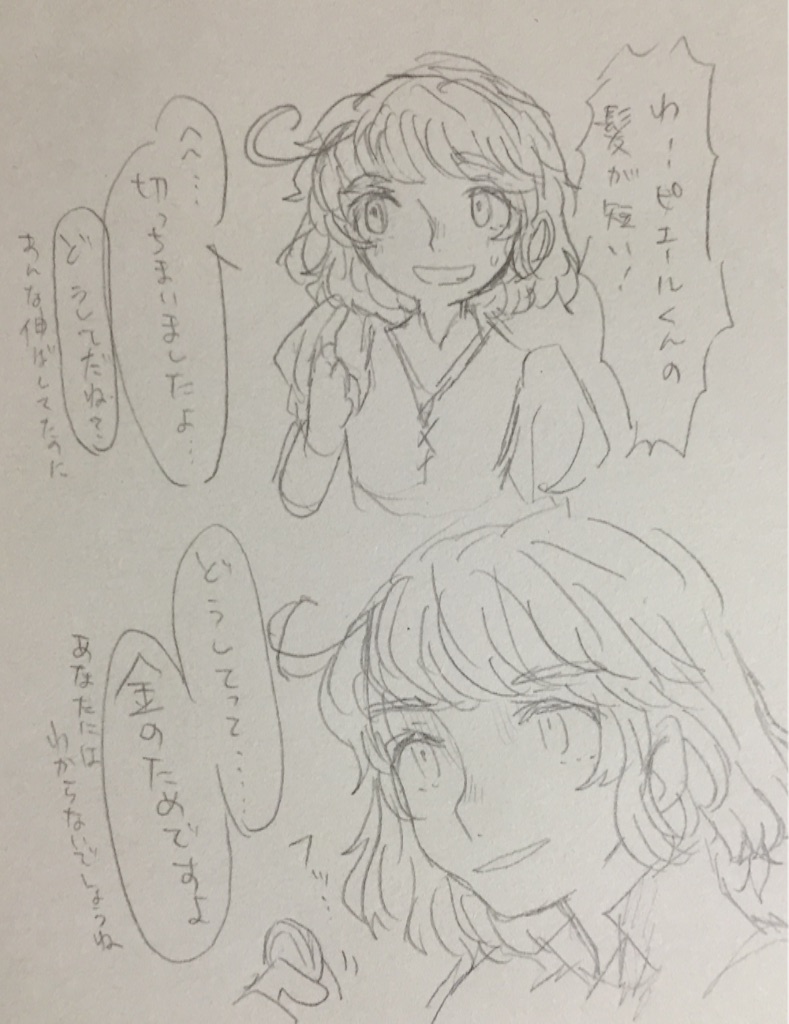 わーピエールくんの
髪が短い!
へへ…
切っちまいましたよ…
どうしてだね?
あんな伸ばしてたのに
どうしてって……
金のためですよ
あなたには
わからないでしょうね
フッ…